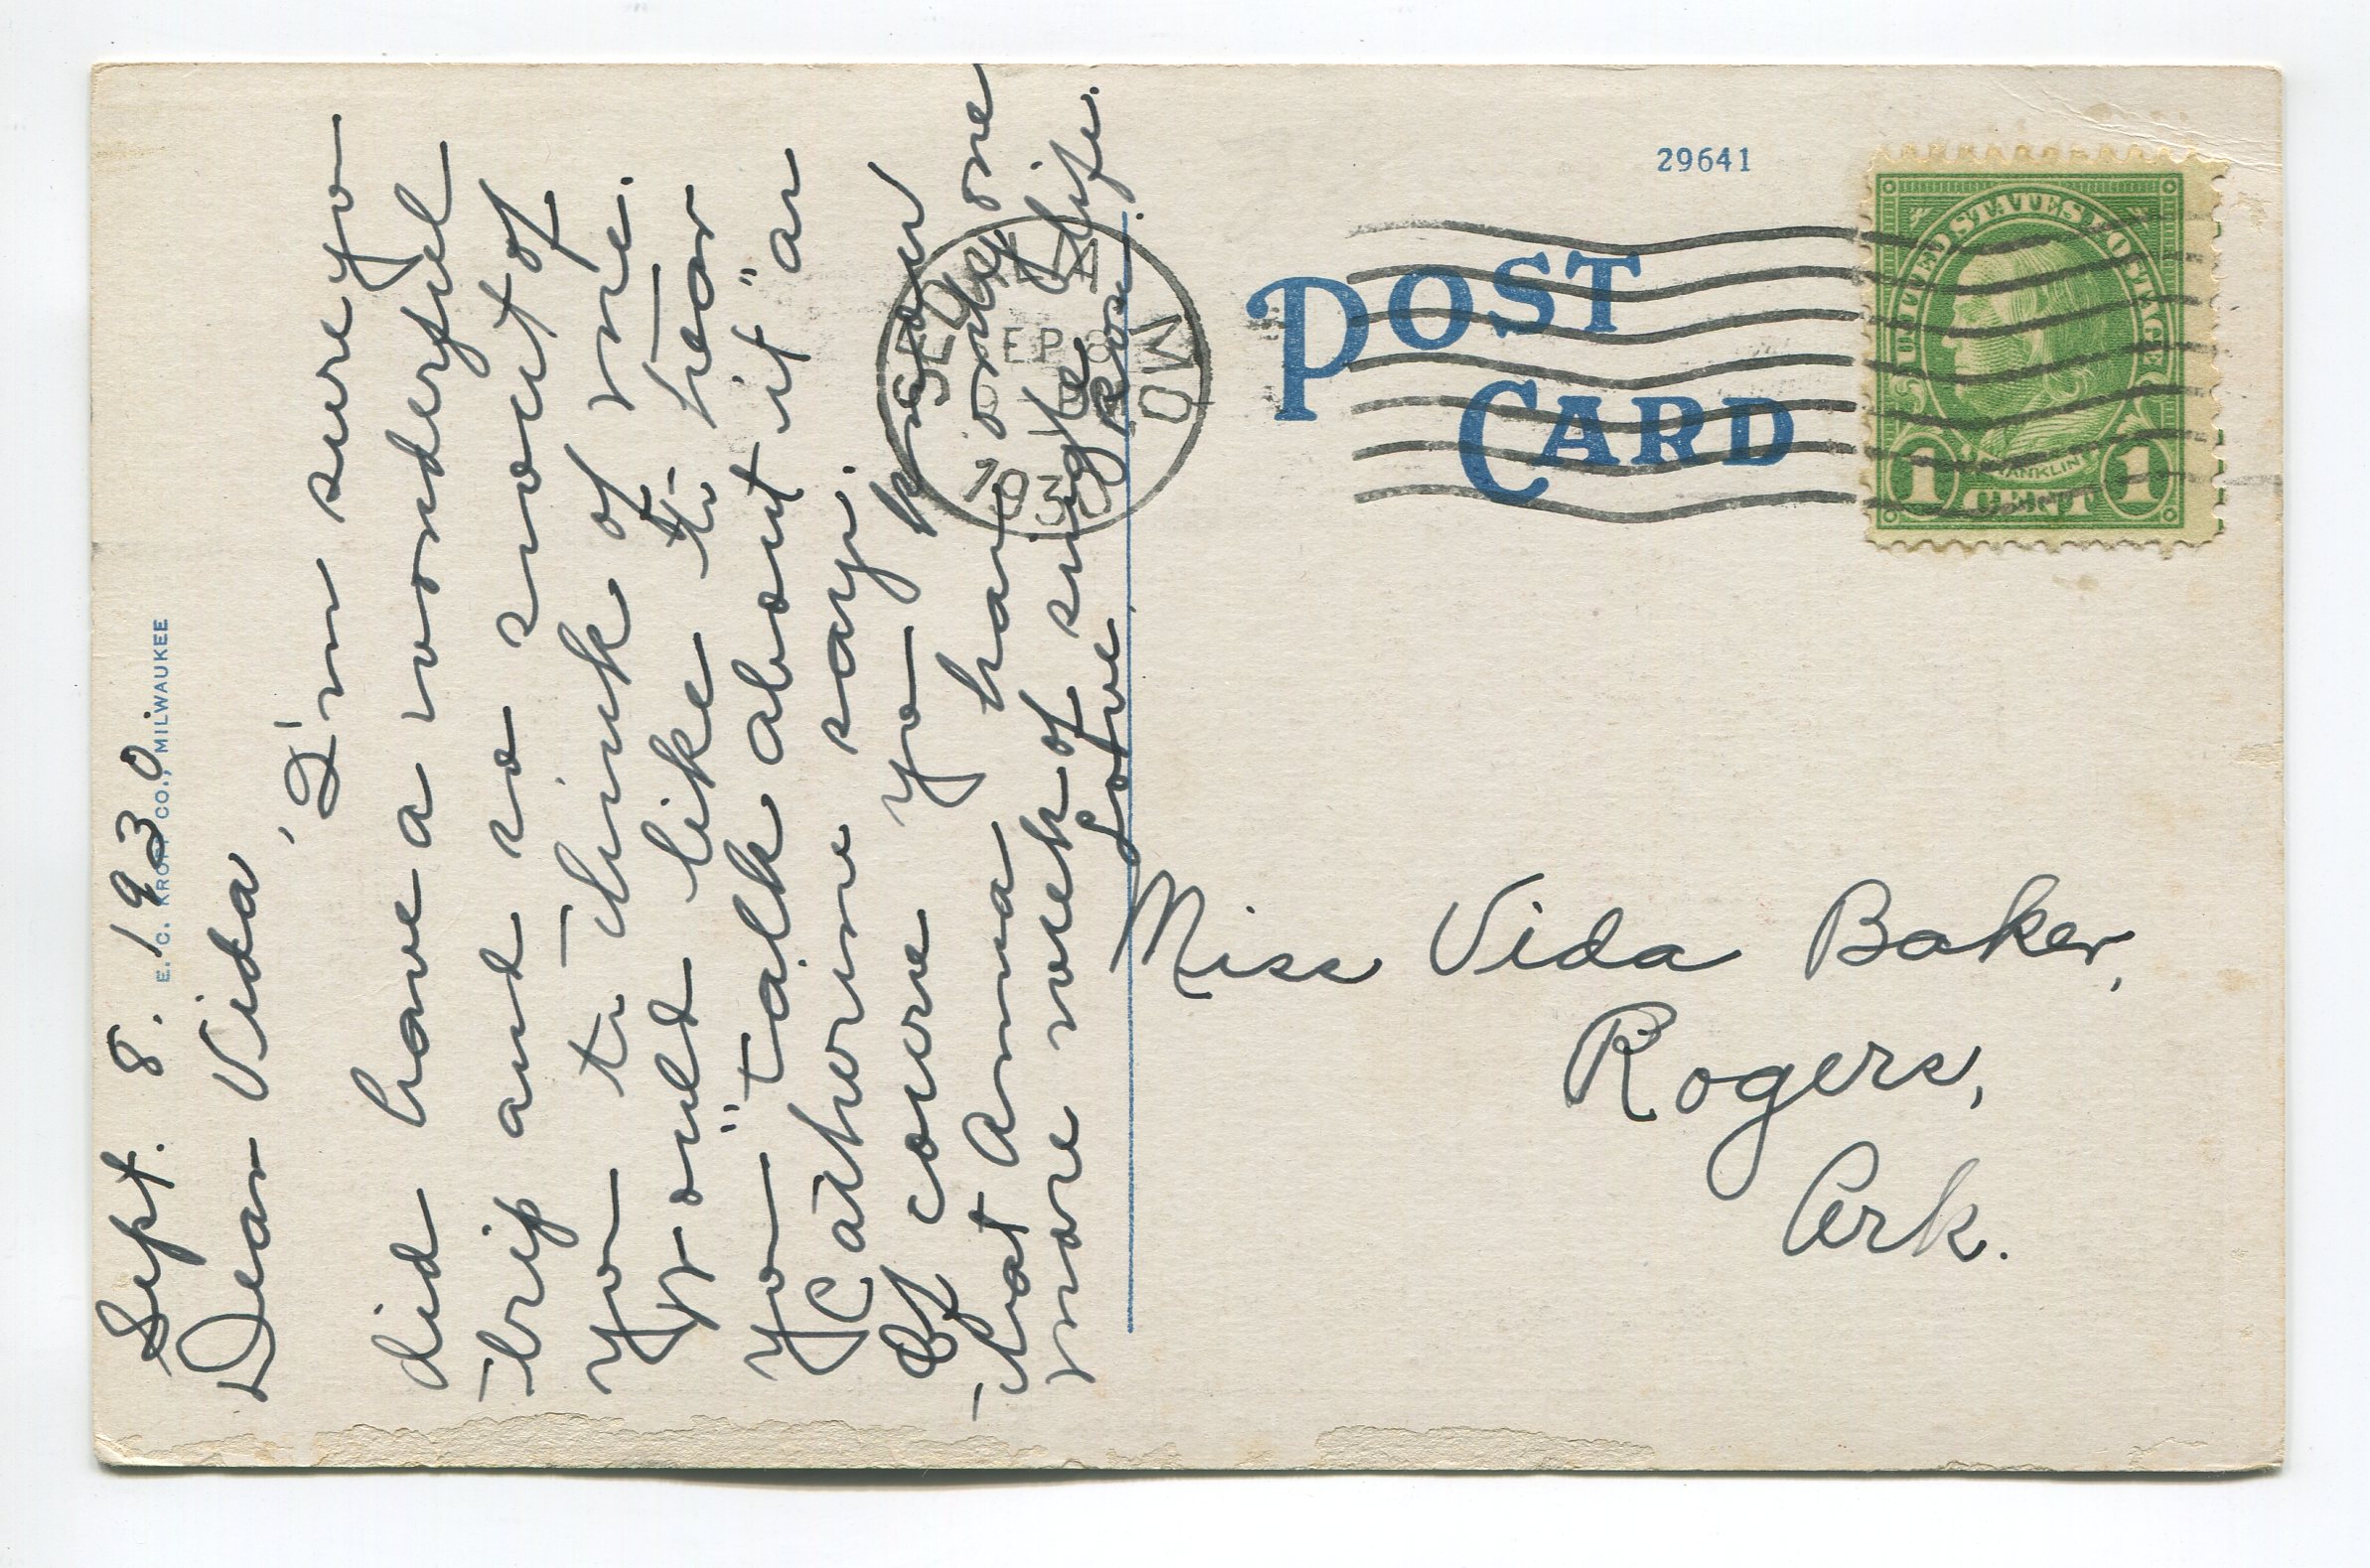 Sept. 8. 1930
Dear Vida,
I'm sure yo
did have a wonderful
trip and so sweet of
yo to think of me.
Would like to hear
yo "talk about it" as
Catherine says.
Of course yo know
that Anna has only one
more week of single life.
Love,
Miss Vida Baker,
Rogers,
Ark.
POST
CARD
29641
SEDALIA
SEP 8
1930
MO
UNITED STATES POSTAGE
FRANKLIN
1 CENT 1
E. C. KROPP CO., MILWAUKEE